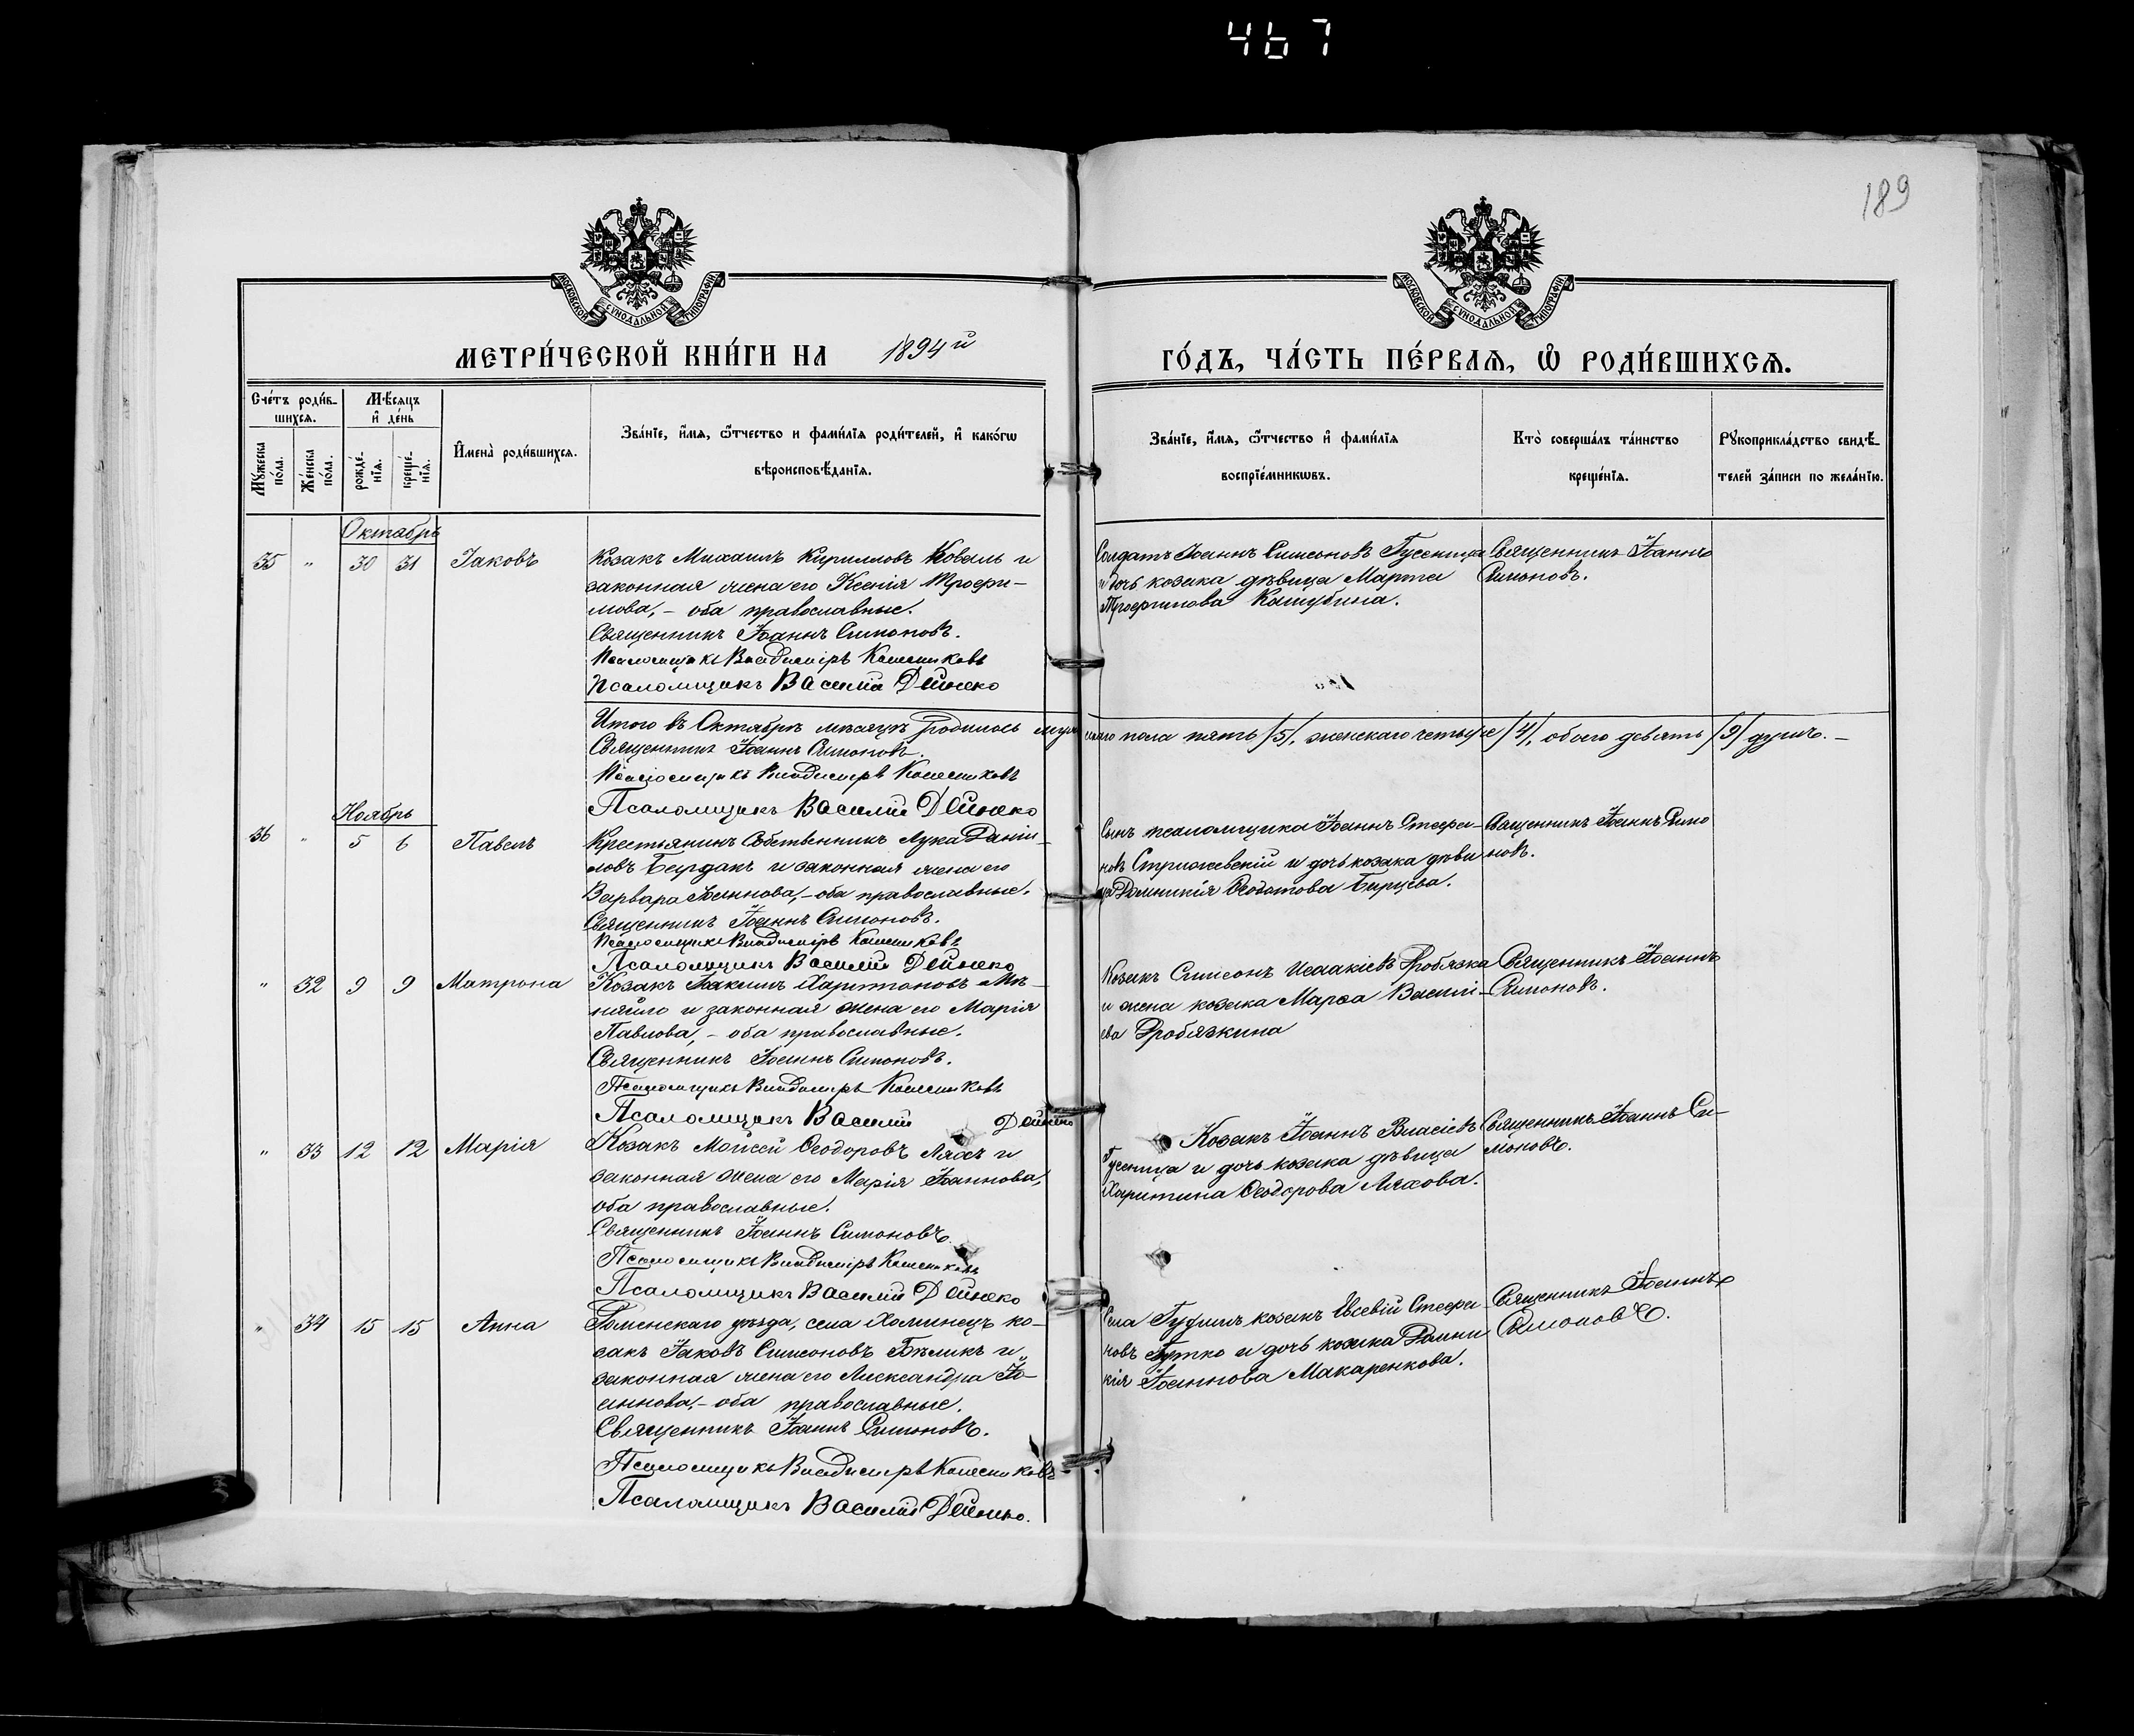 467
189
МОСКОВСКОЙ СѴНОДАЛЬНОЙ ТИПОГРАФІИ
МОСКОВСКОЙ СѴНОДАЛЬНОЙ ТИПОГРАФІИ
МЕТРИ́ЧЕСКОЙ КНИ́ГИ НА 1894й
ГО́ДЪ, ЧА́СТЬ ПЕ́РВАѦ, Ѿ РОДИ́ВШИХСѦ.
Сче́тъ роди́в-
шихсѧ.
Мꙋжеска по́ла.
Же́нска по́ла.
Мѣ́сѧцъ
и҆ де́нь
рожде́-
нїѧ.
креще́-
нїѧ.
И҆мена̀ роди́вшихсѧ.
Зва́нїе, и҆́мѧ, ѻ҆́тчество и фами́лїѧ роди́телей, и҆ како́гѡ
вѣроисповѣ́данїѧ.
Зва́нїе, и҆́мѧ, ѻ҆́тчество и҆ фами́лїѧ
воспрїе́мникѡвъ.
Кто̀ соверша́лъ та́инство
креще́нїѧ.
Рꙋкоприкла́дство свидѣ́-
телей за́писи по жела́нїю.
Октябрь
35 " 30 31 Іаковъ
Козакъ Михаилъ Кирилловъ Коваль и
законная жена его Ксенія Трофи-
мова, – оба православные.
Священникъ Іоаннъ Симоновъ.
Псаломщикъ Владиміръ Колесниковъ
Псаломщикъ Василій Дейнеко
Солдатъ Іоаннъ Симеоновъ Гусеница
и дочь козака дѣвица Марта
Трофимова Кашубина.
Священникъ Іоаннъ
Симоновъ.
Итого въ Октябрѣ мѣсяцѣ родилось мужескаго пола пять /5/, женскаго четыре /4/, обоего девять /9/ душъ. –
Священникъ Іоаннъ Симоновъ.
Псаломщикъ Владиміръ Колесниковъ
Псаломщикъ Василій Дейнеко
Ноябрь
36 " 5 6 Павелъ
Крестьянинъ Собственникъ Лука Даніи-
ловъ Бурдакъ и законная жена его
Варвара Іоаннова, – оба православные.
Священникъ Іоаннъ Симоновъ.
Псаломщикъ Владиміръ Колесниковъ
Псаломщикъ Василій Дейнеко
Сынъ псаломщика Іоаннъ Стефа-
новъ Стрижевскій и дочь козака дѣви
ца Домникія Ѳеодотова
Священникъ Іоаннъ Симо
новъ.
" 32 9 9 Матрона
Козакъ Іоакимъ Харитоновъ Мѣ-
няйло и законная жена его Марія
Павлова, – оба православные.
Священникъ Іоаннъ Симоновъ.
Псаломщикъ Владиміръ Колесниковъ
Псаломщикъ Василій Дейнеко
Козакъ Симеонъ Исаакіевъ Дробязка
и жена козака Марѳа Василі-
ева Дробязкина
Священникъ Іоаннъ
Симоновъ.
" 33 12 12 Марія
Козакъ Моѵсей Ѳеодоровъ Ляхъ и
законная жена его Марія Іоаннова,
оба православные.
Священникъ Іоаннъ Симоновъ.
Псаломщикъ Владиміръ Колесниковъ
Псаломщикъ Василій Дейнеко
Козакъ Іоаннъ Власіевъ
Гусеница и дочь козака дѣвица
Харитина Ѳеодорова Ляхова.
Священникъ Іоаннъ Си-
моновъ.
" 34 15 15 Анна
Роменскаго уѣзда, села Хоминецъ ко-
закъ Іаковъ Симеоновъ Бѣликъ и
законная жена его Александра Іо-
аннова, – оба православные.
Священникъ Іоаннъ Симоновъ.
Псаломщикъ Владиміръ Колесниковъ
Псаломщикъ Василій Дейнеко.
Села козакъ Евсевій Стефа-
новъ и дочь козака Домни
кія Іоаннова Макаренкова.
Священникъ Іоаннъ
Симоновъ.